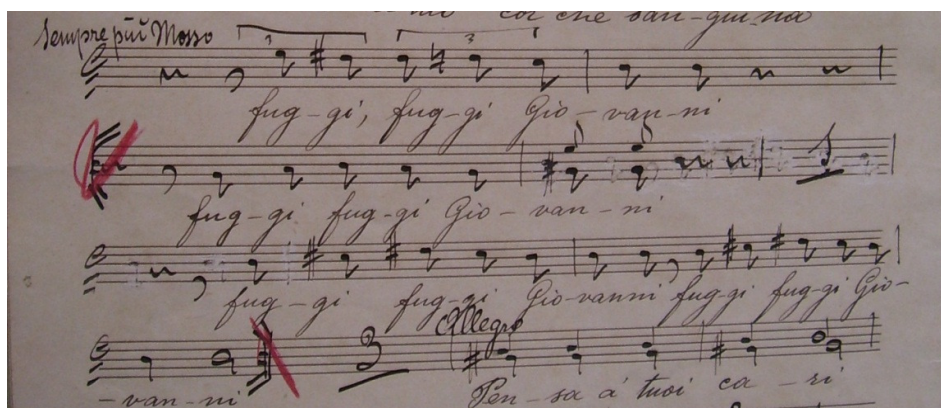 cor che san-gui-na
Sempre più Mosso
3 3
fug-gi, fug-gi Gio-van-ni
fug-gi fug-gi Gio-van-ni
fug-gi fug-gi Gio-vanni fug-gi fug-gi Gio-
3 Allegro
-van-ni Pen-sa a' tuoi ca-ri